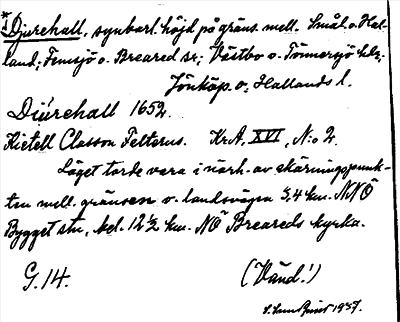 *Djurehall, synbarl. höjd på gräns. mell. Smål. o. Hal-
land; Femsjö o. Breared sr; Västbo o. Tönnersjö hdr;
Jönköp. o. Hallands l.
Diúrehall 1652.
Kietell Classon Felterus. KrA, XVI, N:o 2.
Läget torde vara i närh. av skärningspunk-
ten mell. gränsen o. landsvägen 3,4 km. NNÖ
Bygget stn, bel. 12½ km. NÖ Breareds kyrka.
G. 14. (Vänd!)
1937.